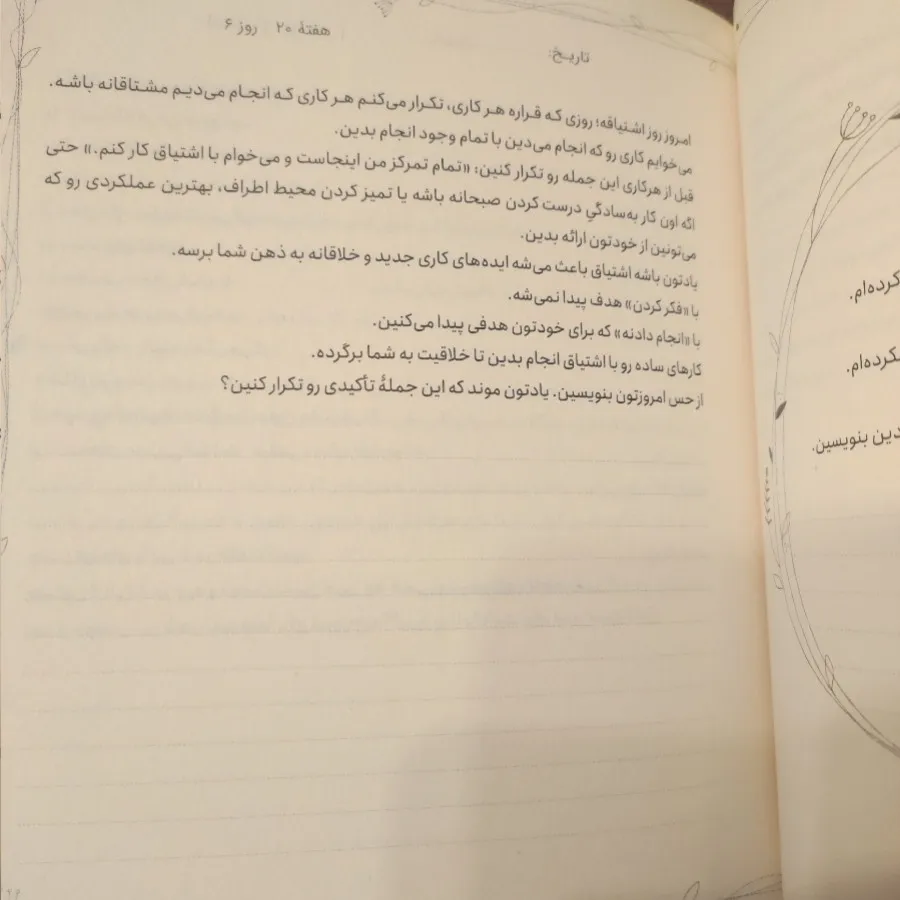 هفتهٔ ۲۰ روز ۶
تاریخ:
امروز روز اشتیاقه؛ روزی که قراره هر کاری، تکرار می‌کنم هر کاری که انجام می‌دیم مشتاقانه باشه.
می‌خوایم کاری رو که انجام می‌دین با تمام وجود انجام بدین.
قبل از هرکاری این جمله رو تکرار کنین: «تمام تمرکز من اینجاست و می‌خوام با اشتیاق کار کنم.» حتی
اگه اون کار به‌سادگیِ درست کردن صبحانه باشه یا تمیز کردن محیط اطراف، بهترین عملکردی رو که
می‌تونین از خودتون ارائه بدین.
یادتون باشه اشتیاق باعث می‌شه ایده‌های کاری جدید و خلاقانه به ذهن شما برسه.
با «فکر کردن» هدف پیدا نمی‌شه.
با «انجام دادنه» که برای خودتون هدفی پیدا می‌کنین.
کارهای ساده رو با اشتیاق انجام بدین تا خلاقیت به شما برگرده.
از حس امروزتون بنویسین. یادتون موند که این جملهٔ تأکیدی رو تکرار کنین؟
کرده‌ام.
دین بنویسین.